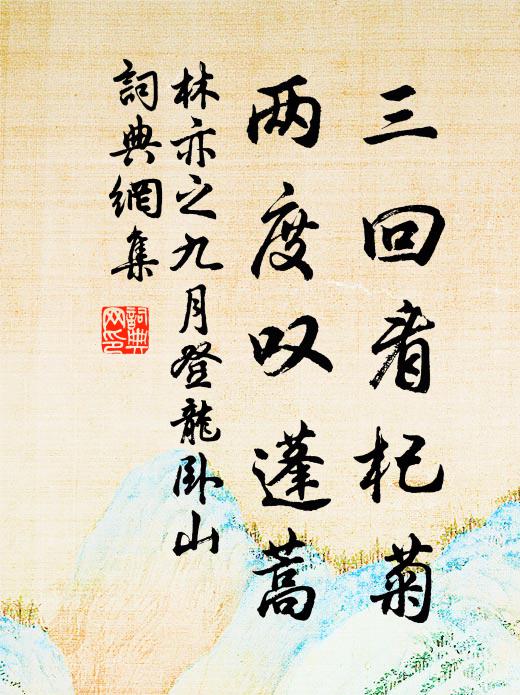 三回看杞菊
两度叹蓬蒿
林亦之九月登龍卧山
詞典網集
詞典网印